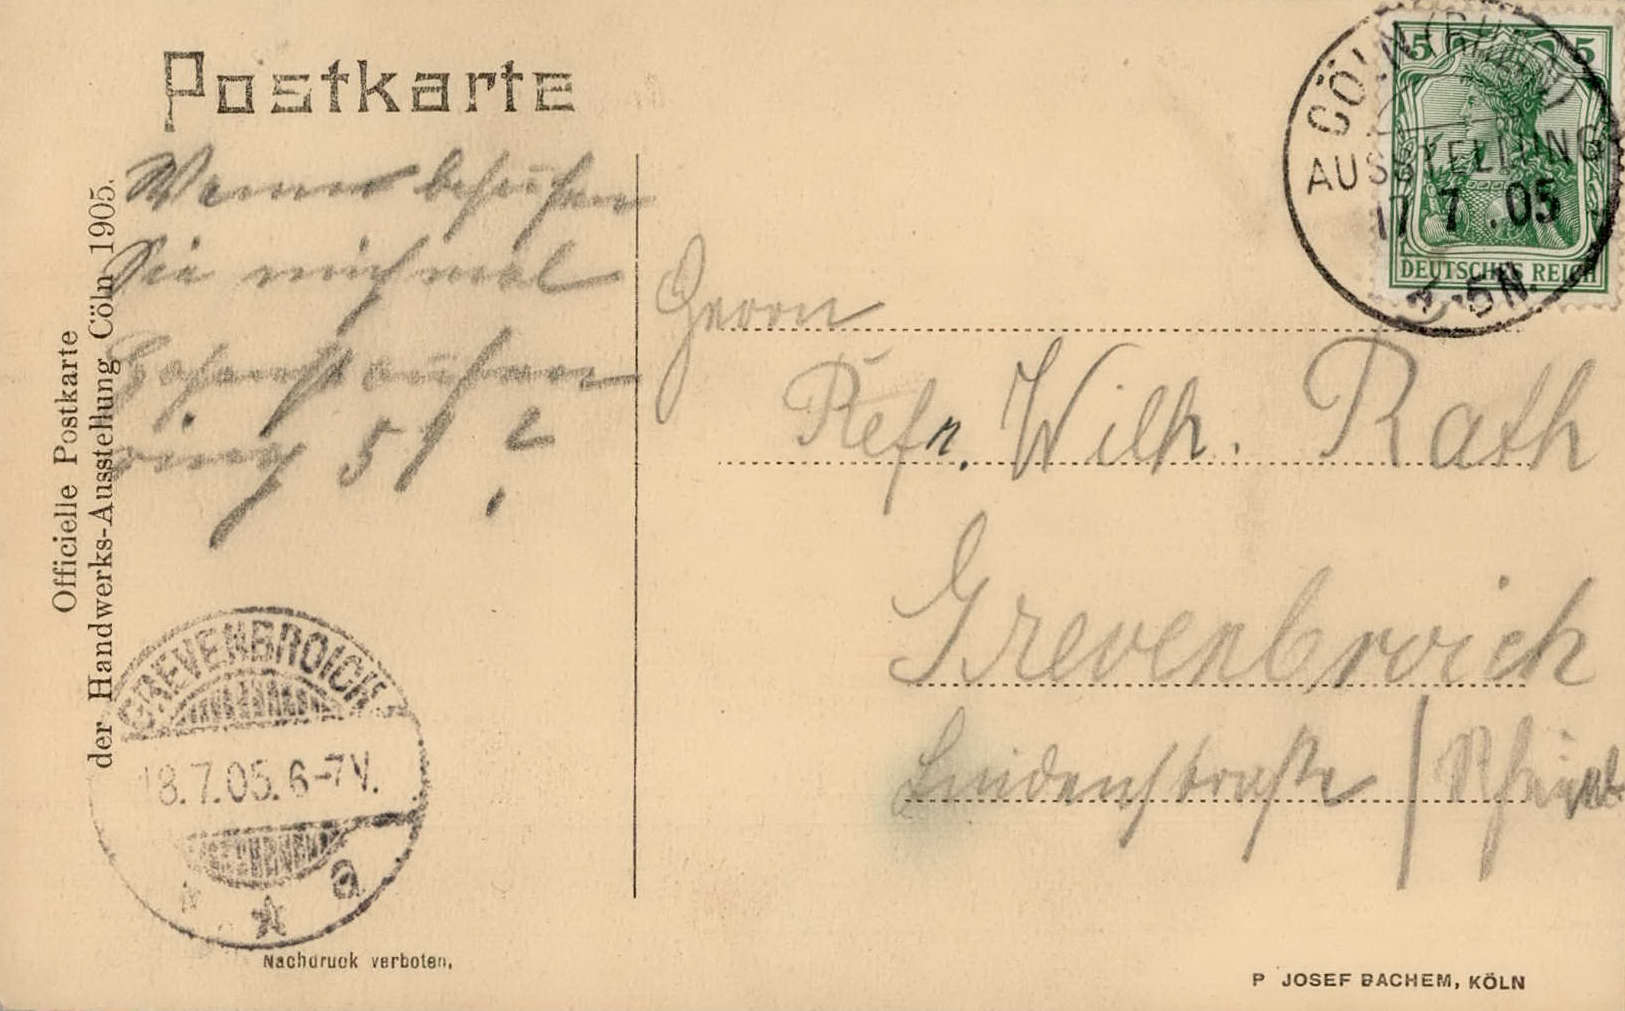 Postkarte
Officielle Postkarte
der Handwerks-Ausstellung Cöln 1905.
Wann besuchen
Sie mich mal
Hohenstaufen
ring 51?
CÖLN (RHEIN)
AUSSTELLUNG
17.7.05
5N
5 5
DEUTSCHES REICH
Herrn
Refr. Wilh. Rath
Grevenbroich
Lindenstraße /
GREVENBROICH
18.7.05. 6-7V.
a
Nachdruck verboten.
P. JOSEF BACHEM, KÖLN